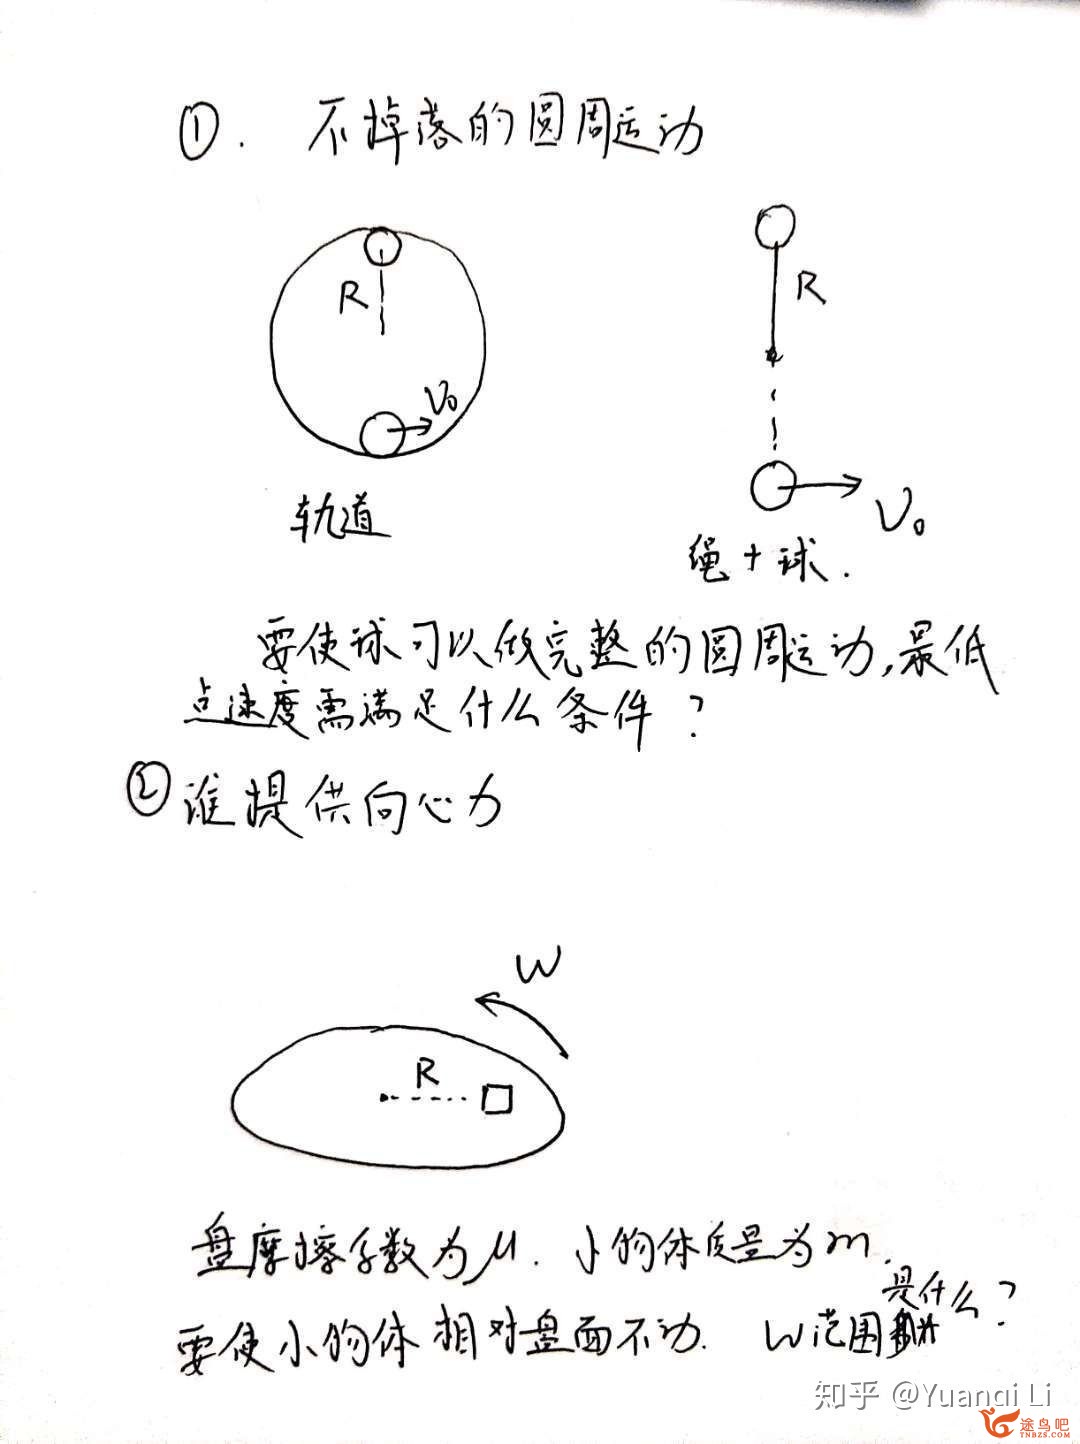 ①. 不掉落的圆周运动
R
R
V₀
V₀
轨道
绳+球.
要使球可以做完整的圆周运动,最低
点速度需满足什么条件?
② 谁提供向心力
W
R
盘摩擦系数为μ. 小物体质量为m.
是什么?
要使小物体相对盘面不动. W范围
知乎 @Yuanqi Li
途鸟吧
TNBZS.COM